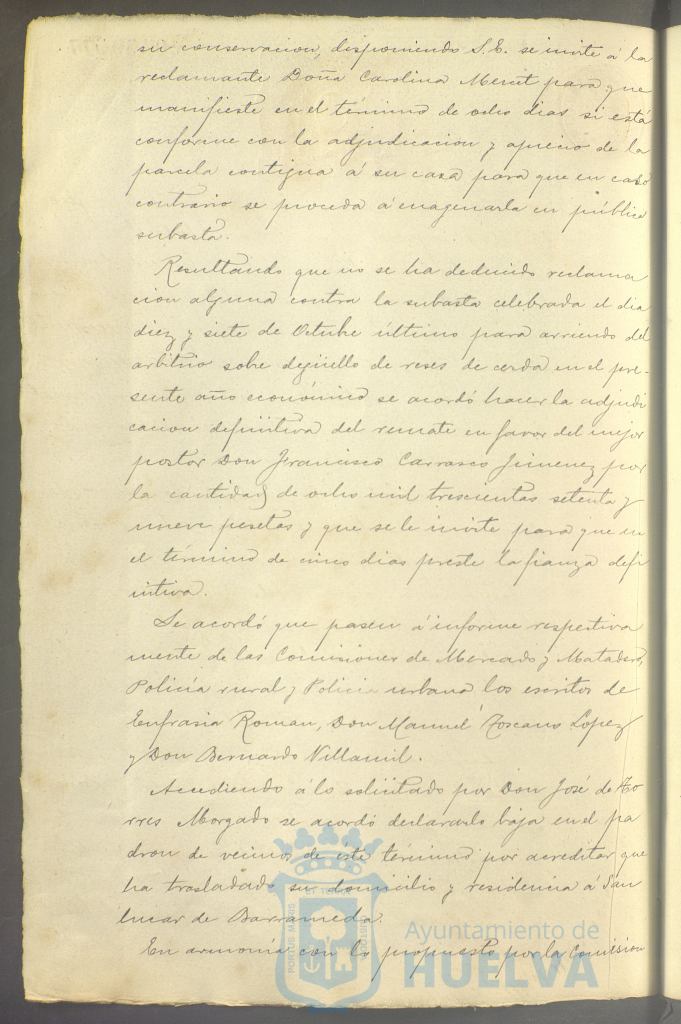 su conservacion, disponiendo S.E. se invite á la
reclamante Doña Carolina Mercet para que
manifieste en el término de ocho dias si está
conforme con la adjudicacion y aprecio de la
parcela contigua á su casa para que en caso
contrario se proceda á enagenarla en pública
subasta.
Resultando que no se ha deducido reclama
cion alguna contra la subasta celebrada el dia
diez y siete de Octubre último para arriendo del
arbitrio sobre degüello de reses de cerda en el pre-
sente año económico se acordó hacer la adjudi
cacion definitiva del remate en favor del mejor
postor Don Francisco Carrasco Jimenez por
la cantidad de ocho mil trescientas setenta y
nueve pesetas y que se le invite para que en
el término de cinco dias preste la fianza defi
nitiva.
Se acordó que pasen á informe respectiva
mente de las Comisiones de Mercado y Matadero,
Policía rural y Policia urbana los escritos de
Eufrasia Roman, Don Manuel Toscano Lopez
y Don Bernardo Villamil.
Accediendo á lo solicitado por Don José de To
rres Morgado se acordó declararlo baja en el pa
dron de vecinos de éste término por acreditar que
ha trasladado su domicilio y residencia á San
lucar de Barrameda.
En armonía con lo propuesto por la Comision
Ayuntamiento de
HUELVA